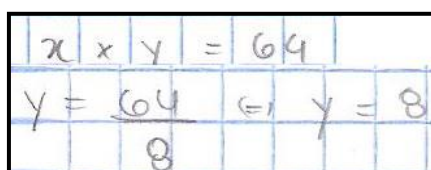 x × y = 64
y = 64/8 (=) y = 8